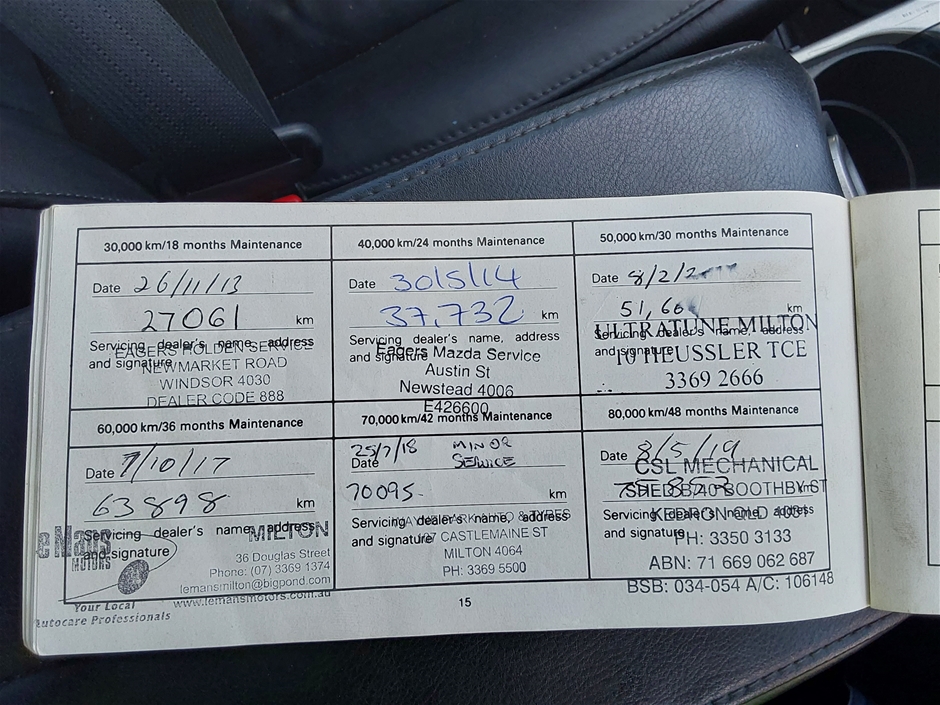 30,000 km/18 months Maintenance
Date 26/11/13
27061 km
Servicing dealer's name, address
and signature
EAGERS HOLDEN SERVICE
NEWMARKET ROAD
WINDSOR 4030
DEALER CODE 888
40,000 km/24 months Maintenance
Date 30/5/14
37,732 km
Servicing dealer's name, address
and signature
Eagers Mazda Service
Austin St
Newstead 4006
E426600
50,000 km/30 months Maintenance
Date 8/2/
51,66 km
Servicing dealer's name, address
and signature
ULTRATUNE MILTON
10 HEUSSLER TCE
3369 2666
60,000 km/36 months Maintenance
Date 7/10/17
63898 km
Servicing dealer's name, address
and signature
MOTORS
MILTON
36 Douglas Street
Phone: (07) 3369 1374
lemansmotors@bigpond.com
www.lemansmotors.com.au
Your Local
Autocare Professionals
70,000 km/42 months Maintenance
Date 25/7/18 MINOR
SERVICE
70095 km
Servicing dealer's name, address
and signature
CASTLEMAINE ST
MILTON 4064
PH: 3369 5500
80,000 km/48 months Maintenance
Date 8/5/19
km
Servicing dealer's name, address
and signature
CSL MECHANICAL
BOOTHBY ST
KEDRON QLD 4031
PH: 3350 3133
ABN: 71 669 062 687
BSB: 034-054 A/C: 106148
15